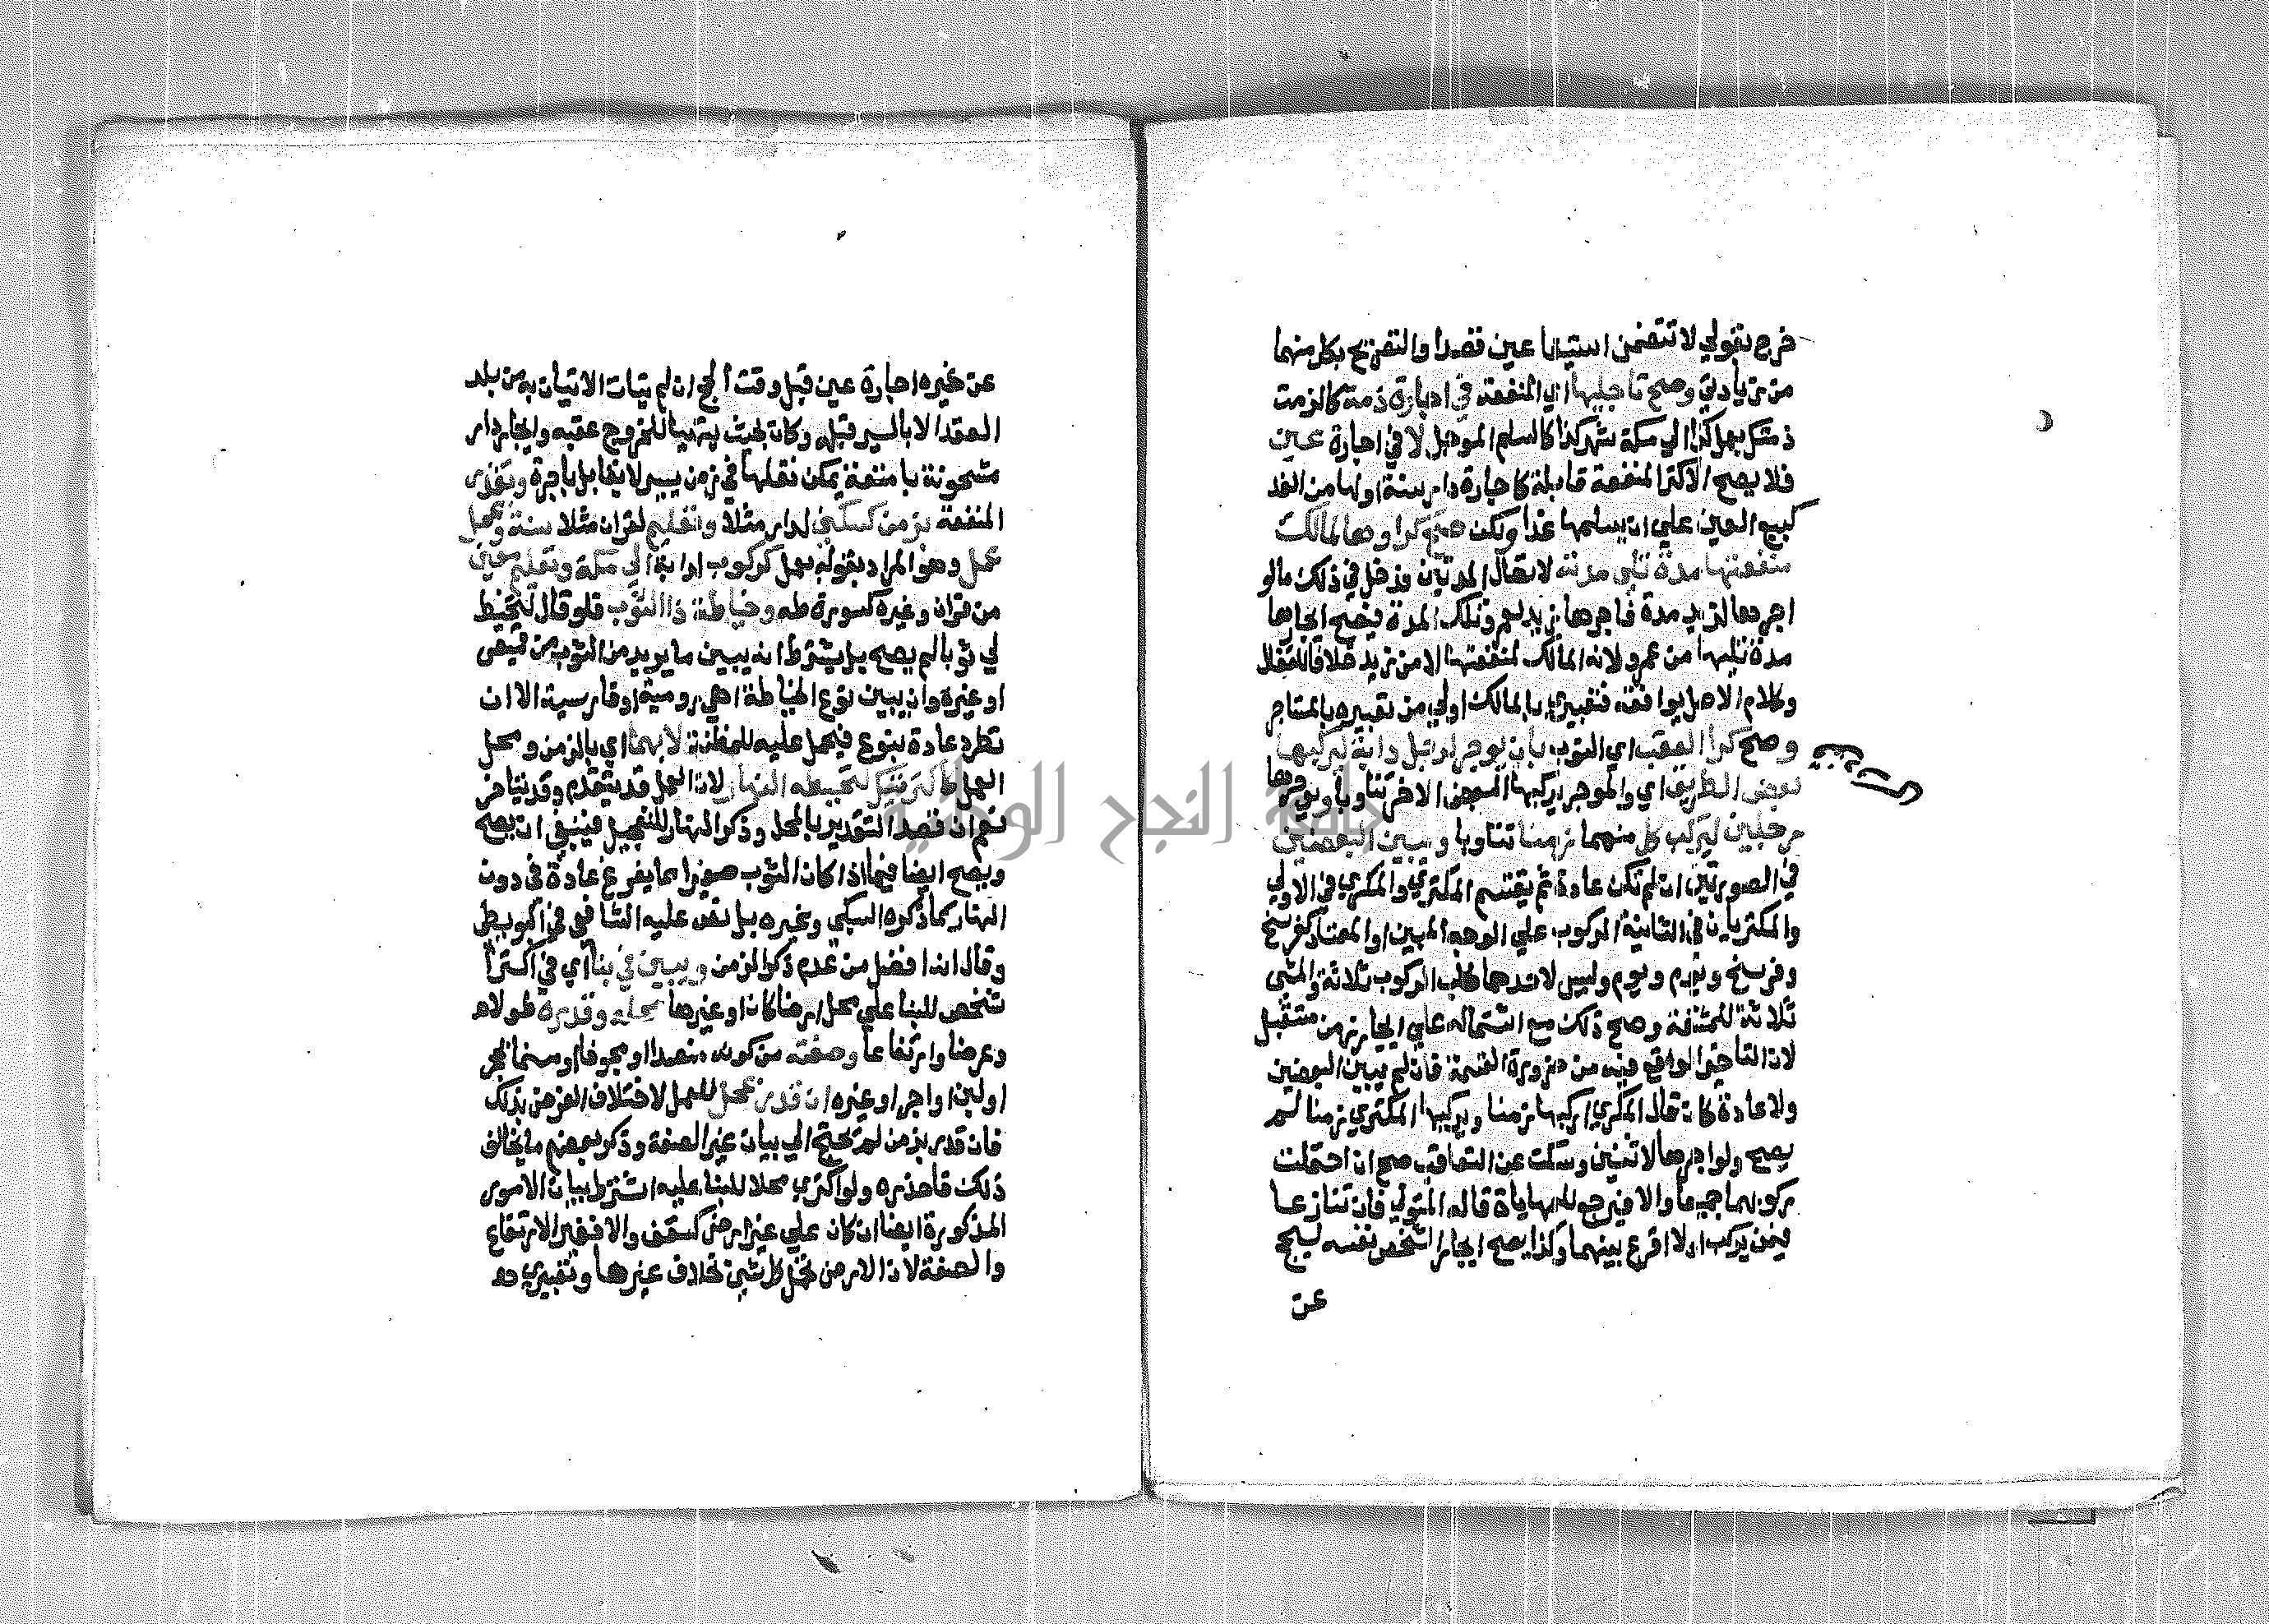 خرج بقولي لا تتضمن استيفا عين قصدا والتصريح بكل منهما
من زيادتي وصح تاجيلها اي المنفعة في اجارة ذمة كالزمت
ذمتك بحمل كذا الي مكة شهر كذا كالسلم الموجل لا في اجارة عين
فلا يصح الاكترا لمنفعة قابلة كاجارة دار سنة اولها من الغد
كبيع العين علي ان يسلمها غدا ولكن صح كراوها لمالك
منفعتها مدة تلي مدته لاتصال المدتين ودخل في ذلك مالو
اجرها لزيد مدة فاجرها زيد لعمرو تلك المدة فيصح ايجارها
مدة تليها من عمرو لانه المالك لمنفعتها لا من زيد خلافا للقفال
وكلام الاصل يوافقه فتعبيري بالمالك اولي من تعبيره بالمستاجر
وصح كرا العقب اي النوب بان يوجر لرجل دابة ليركبها
بعض الطريق اي والموجر يركبها البعض الاخر تناوبا او يوجرها
رجلين ليركب كل منهما زمنا تناوبا ويبين البعضين
في الصورتين ان لم تكن عادة ثم يقتسم المكتري والمكري في الاولي
والمكتريان في الثانية الركوب علي الوجه المبين او المعتاد كفرسخ
وفرسخ ويوم ويوم وليس لاحدهما طلب الركوب ثلاثة والمشي
ثلاثة للمشقة وصح ذلك مع اشتماله علي ايجار زمن مستقبل
لان التاخير الواقع فيه من ضرورة القسمة فان لم يبين البعضين
ولا عادة كان قال المكري اركبها زمنا ويركبها المكتري زمنا لم
يصح ولو اجرها لاثنين وسكت عن التعاقب صح ان احتملت
ركوبهما جميعا والا فيرجع للمهاياة قاله المتولي فان تنازعا
فيمن يركب اولا اقرع بينهما وكذا يصح ايجار الشخص نفسه ليحج
عن
عن غيره اجارة عين قبل وقت الحج ان لم يتات الاتيان به من بلد
العقد الا بالسير قبله وكان بحيث يتهيا للخروج عقبه وايجار دار
مشحونة بامتعة يمكن نقلها في زمن يسير لا يقابل باجرة وتقدر
المنفعة بزمن كسكني لدار مثلا وتعليم لقران مثلا سنة وبمحل
عمل وهو المراد بقوله بعمل كركوب لدابة الي مكة وتعليم معين
من قران وغيره كسورة طه وخياطة ذا الثوب فلو قال لتخيط
لي ثوبا لم يصح بل يشترط ان يبين ما يريد من الثوب من قميص
او غيره وان يبين نوع الخياطة اهي رومية او فارسية الا ان
تطرد عادة بنوع فيحمل عليه المطلق لا بهما اي بالزمن ومحل
العمل كاكتريتك لتخيطه النهار لان العمل قد يتقدم وقد يتاخر
نعم ان قصد التقدير بالمحل وذكر النهار للتعجيل فينبغي ان يصح
ويصح ايضا فيما اذا كان الثوب صغيرا مما يفرغ عادة في دون
النهار كما ذكره السبكي وغيره بل نص عليه الشافعي في البويطي
وقال انه افضل من عدم ذكر الزمن ويبين في بنا اي في اكترا
شخص للبنا علي محل ارضا كان او غيرها محله وقدره طولا
وعرضا وارتفاعا وصفته من كونه منضدا او مجوفا او مسنما بحجر
او لبن او اجر او غيره ان قدر بمحل للعمل لاختلاف الغرض بذلك
فان قدر بزمن لم يحتج الي بيان غير الصفة وذكر بعضهم ما يخالف
ذلك فاحذره ولو اكتري محلا للبنا عليه اشترط بيان الامور
المذكورة ايضا ان كان علي غير ارض كسقف والا فغير الارتفاع
والصفة لان الارض تحمل كل شي بخلاف غيرها وتعبيري
جامعة النجاح الوطنية